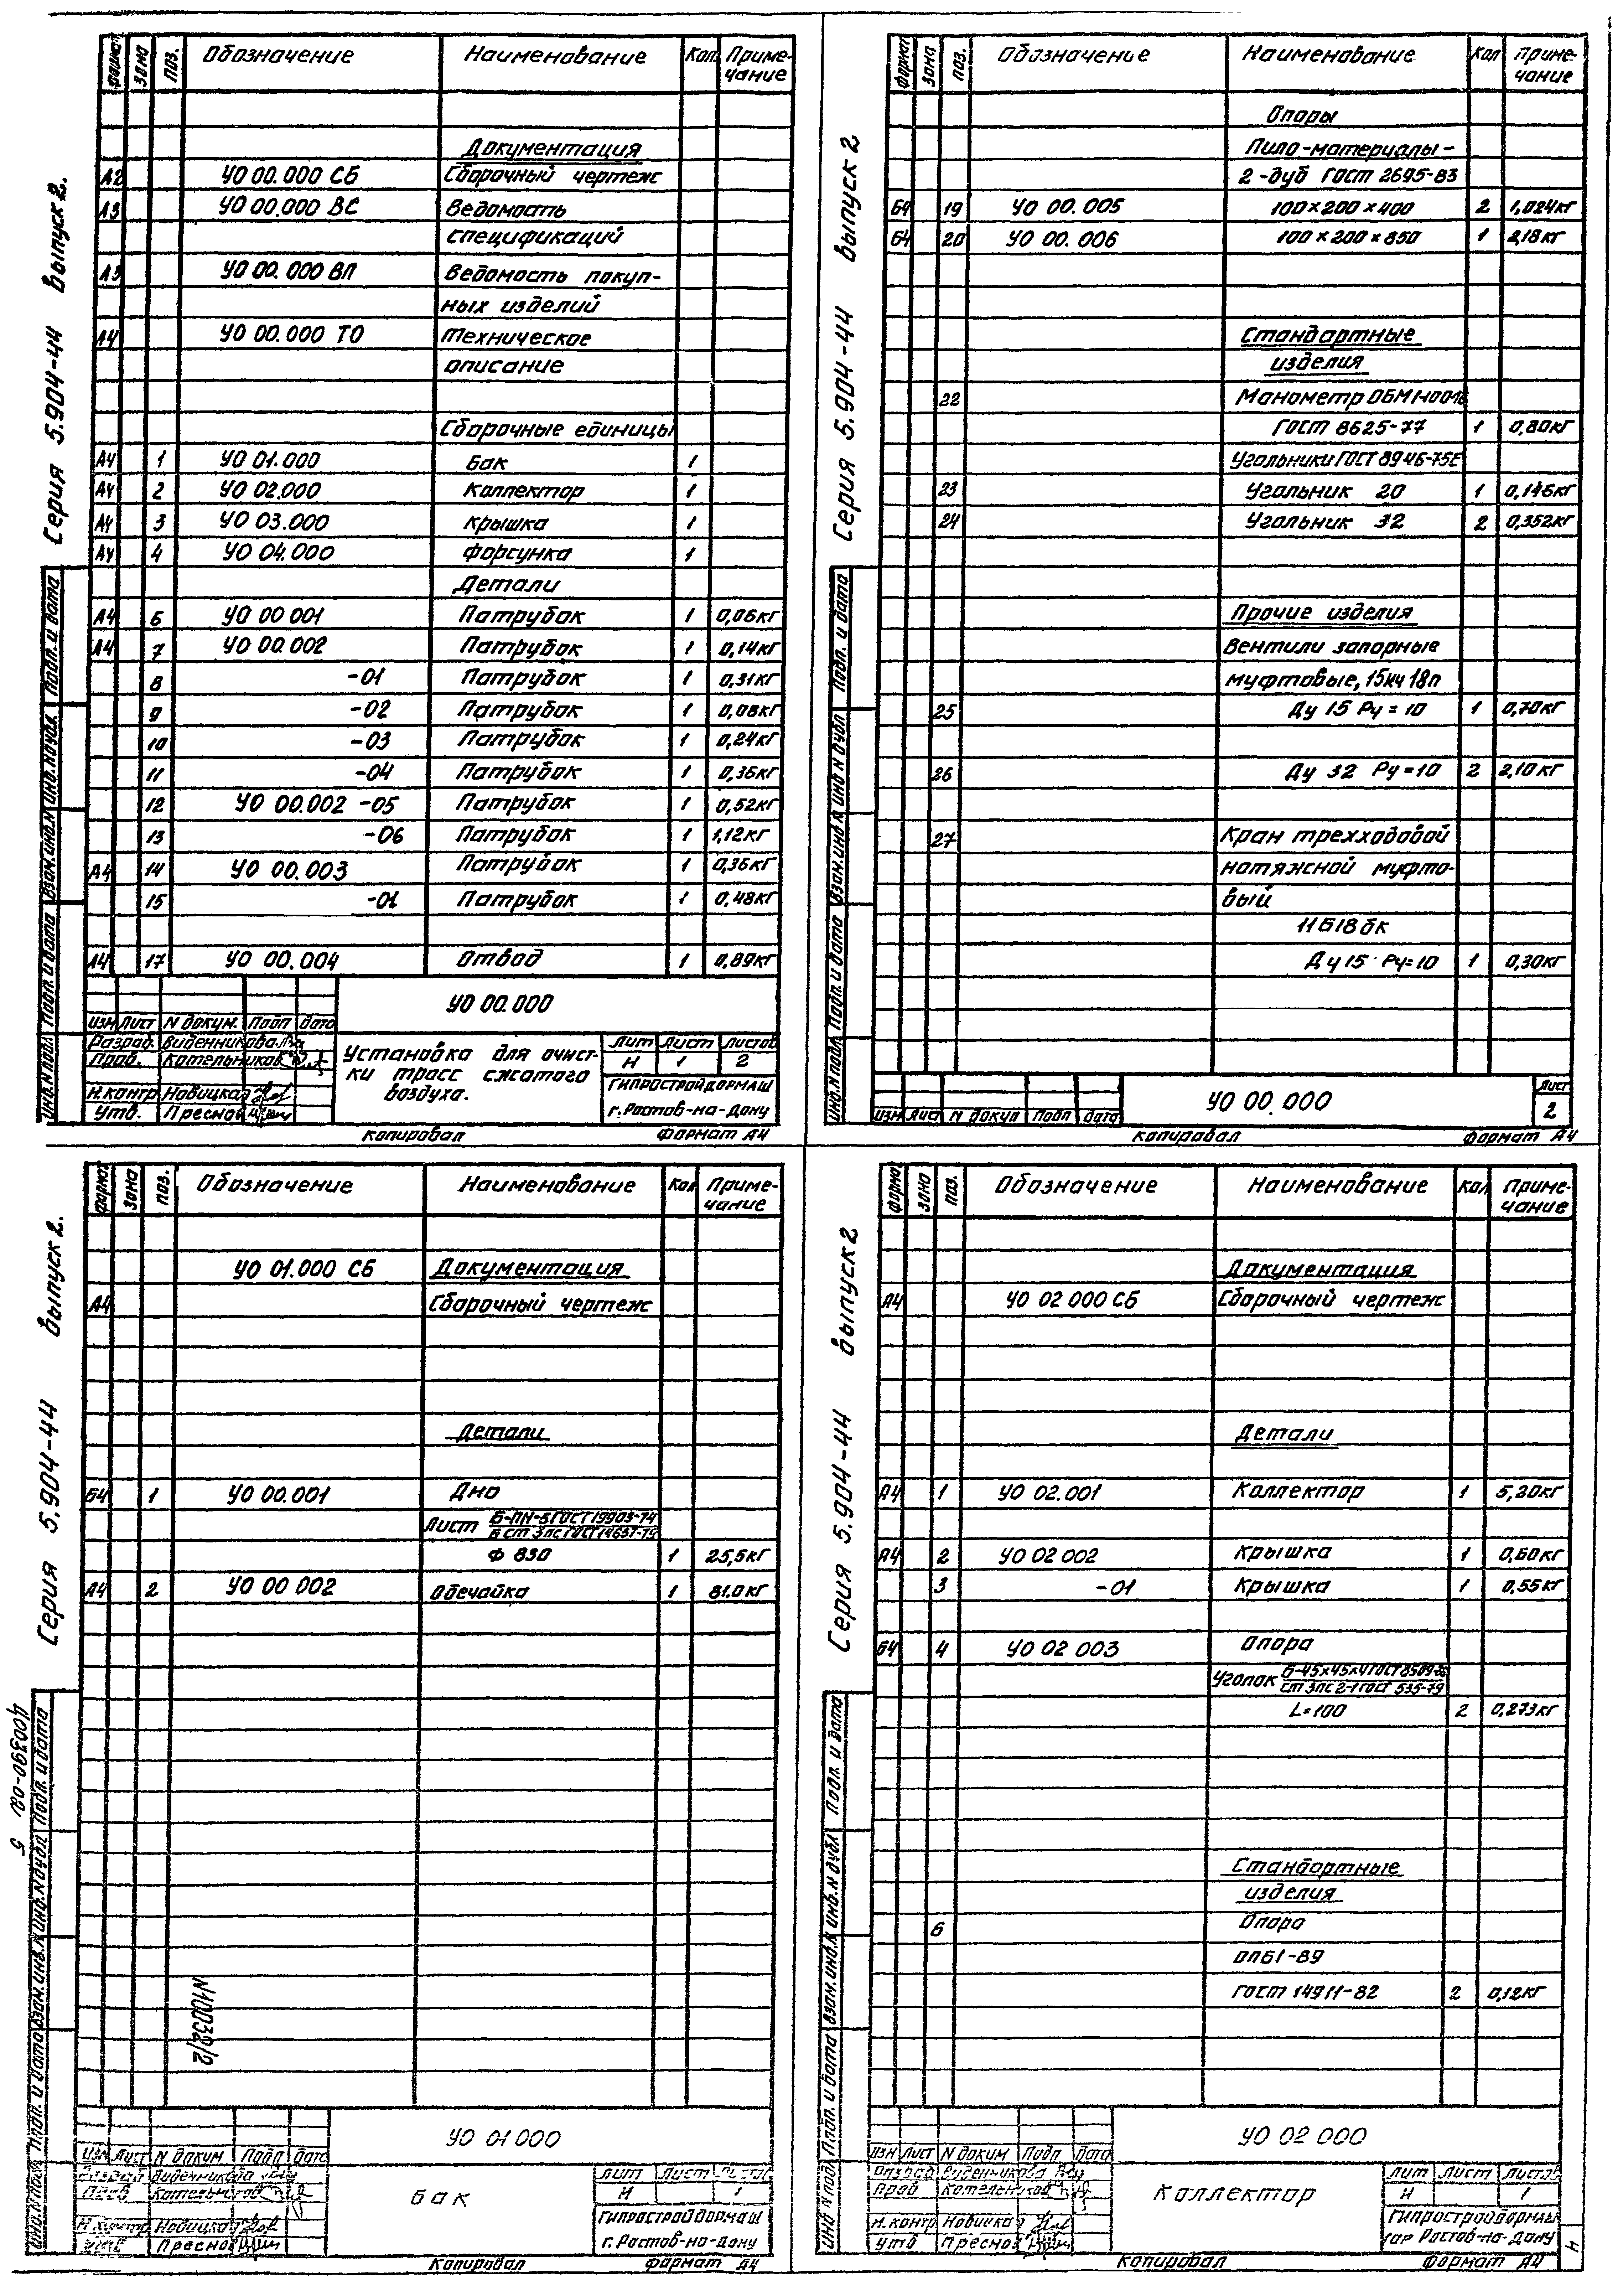 Серия 5.904-44 выпуск 2.
Формат Зона Поз. Обозначение Наименование Кол. Примечание
Документация
А2 УО 00.000 СБ Сборочный чертеж
А3 УО 00.000 ВС Ведомость
спецификаций
А3 УО 00.000 ВП Ведомость покуп-
ных изделий
А4 УО 00.000 ТО Техническое
описание
Сборочные единицы
А4 1 УО 01.000 Бак 1
А4 2 УО 02.000 Коллектор 1
А4 3 УО 03.000 Крышка 1
А4 4 УО 04.000 Форсунка 1
Детали
А4 6 УО 00 001 Патрубок 1 0,06кг
А4 7 УО 00.002 Патрубок 1 0,14кг
8 -01 Патрубок 1 0,31кг
9 -02 Патрубок 1 0,08кг
10 -03 Патрубок 1 0,24кг
11 -04 Патрубок 1 0,36кг
12 УО 00.002 -05 Патрубок 1 0,52кг
13 -06 Патрубок 1 1,12кг
А4 14 УО 00.003 Патрубок 1 0,36кг
15 -01 Патрубок 1 0,48кг
А4 17 УО 00.004 Отвод 1 0,89кг
УО 00.000
Изм Лист N докум. Подп Дата
Разраб. Виденникова
Пров. Котельников
Н.контр Новицкая
Утв. Преснов
Установка для очист-
ки трасс сжатого
воздуха.
Лит Лист Листов
И 1 2
Гипростройдормаш
г. Ростов-на-Дону
Копировал Формат А4
Инв.N подл. Подп. и дата Взам.инв.N Инв.N дубл. Подп. и дата
Серия 5.904-44 выпуск 2
Формат Зона Поз. Обозначение Наименование Кол Примечание
Опоры
Пило-материалы-
2-дуб ГОСТ 2695-83
Б4 19 УО 00.005 100×200×400 2 1,024кг
Б4 20 УО 00.006 100×200×850 1 2,18кг
Стандартные
изделия
22 Манометр
ГОСТ 8625-77 1 0,80кг
Угольники ГОСТ 8946-75
23 Угольник 20 1 0,146кг
24 Угольник 32 2 0,352кг
Прочие изделия
Вентили запорные
муфтовые, 15кч18п
25 Ду 15 Ру=10 1 0,70кг
26 Ду 32 Ру=10 2 2,10кг
27 Кран трехходовой
натяжной муфто-
вый
11Б18бк
Ду15 Ру=10 1 0,30кг
Изм Лист N докум Подп Дата
УО 00.000
Лист
2
Копировал Формат А4
Инв.N подл. Подп. и дата Взам.инв.N Инв N дубл Подп. и дата
Серия 5.904-44 выпуск 2.
Формат Зона Поз. Обозначение Наименование Кол Примечание
УО 01.000 СБ Документация
А4 Сборочный чертеж
Детали
Б4 1 УО 00.001 Дно
Лист Б-ПН-5 ГОСТ19903-74
ГОСТ14637-79
Ф 830 1 25,5кг
А4 2 УО 00 002 Обечайка 1 81.0кг
N10032/2
400390-02 5
УО 01 000
Изм Лист N докум Подп Дата
Разраб Виденникова
Пров Котельников
Н.контр Новицкая
Утв Преснов
Бак
Лит Лист Листов
И 1
Гипростройдормаш
г. Ростов-на-Дону
Копировал Формат А4
Инв.N подл. Подп. и дата Взам.инв.N Инв.N дубл Подп. и дата
Серия 5.904-44 выпуск 2
Формат Зона Поз. Обозначение Наименование Кол Примечание
Документация
А4 УО 02 000 СБ Сборочный чертеж
Детали
А4 1 УО 02.001 Коллектор 1 5,20кг
А4 2 УО 02 002 Крышка 1 0,60кг
3 -01 Крышка 1 0,55кг
Б4 4 УО 02 003 Опора
Уголок Б-45×45×4 ГОСТ
Ст 3пс 2-1 ГОСТ 535-79
L=100 2 0,273кг
Стандартные
изделия
6 Опора
ОПБ1-89
ГОСТ 14911-82 2 0,12кг
УО 02 000
Изм Лист N докум Подп Дата
Разраб Виденникова
Пров Котельников
Н.контр Новицкая
Утв Преснов
Коллектор
Лит Лист Листов
И 1
Гипростройдормаш
гор Ростов-на-Дону
Копировал Формат А4
4
Инв N подл. Подп. и дата Взам.инв.N Инв.N дубл Подп. и дата